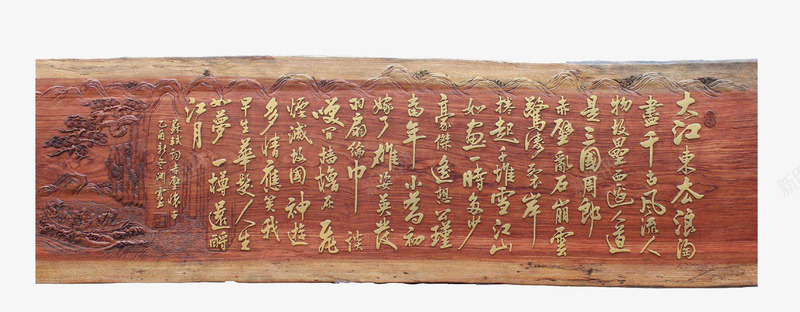 大江東去浪淘
盡千古風流人
物故壘西邊人道
是三國周郎
赤壁亂石崩雲
驚濤裂岸
捲起千堆雪江山
如畫一時多少
豪傑遙想公瑾
當年小喬初
嫁了雄姿英發
羽扇綸巾談
笑間檣櫓灰飛
煙滅故國神遊
多情應笑我
早生華髮人生
如夢一樽還酹
江月
蘇軾詞赤壁懷古
乙酉